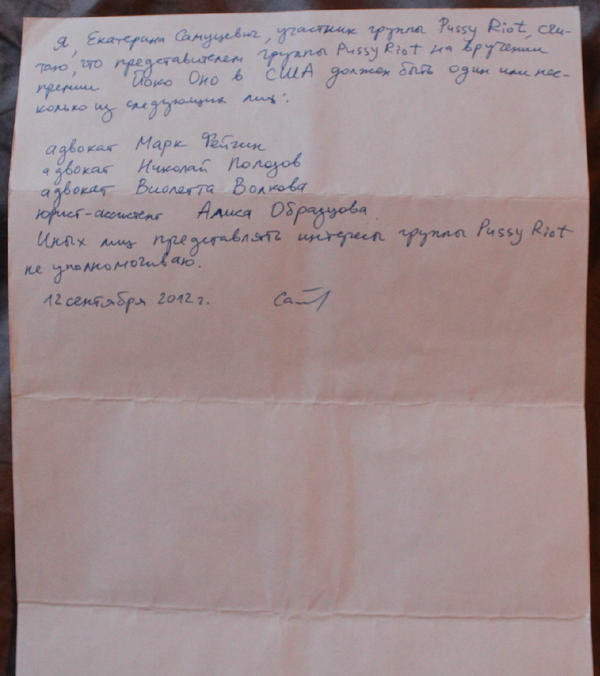 Я, Екатерина Самуцевич, участник группы Pussy Riot, счи-
таю, что представителем группы Pussy Riot на вручении
премии Йоко Оно в США должен быть один или нес-
колько из следующих лиц:
адвокат Марк Фейгин
адвокат Николай Полозов
адвокат Виолетта Волкова
юрист-ассистент Алиса Образцова.
Иных лиц представлять интересы группы Pussy Riot
не уполномочиваю.
12 сентября 2012 г.